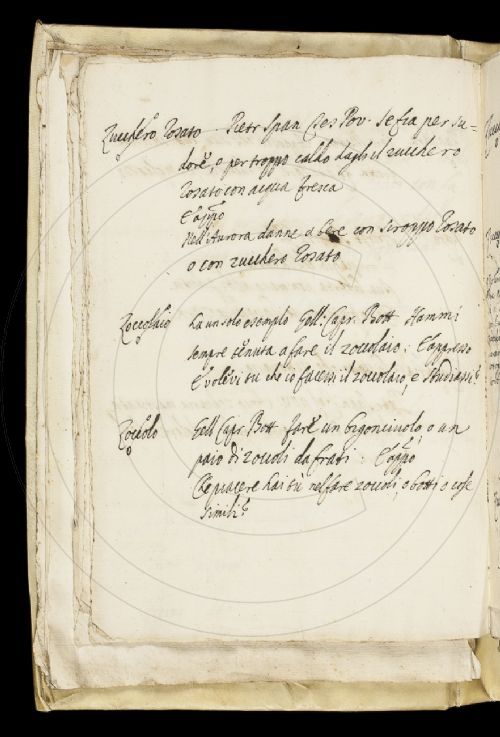 Zucchero Rosato. Pietr Span Tes Pov. Se fia per su=
dore, o per troppo caldo dagli il zucchero
Rosato con acqua fresca
E app.o
Nell'Aurora danne a bere con siroppo Rosato
o con zucchero Rosato
Zoccolaio ha un solo esempio Gell. Capr. Bott Hammi
sempre tenuta a fare il zoccolaio: E appresso
E volevi tu che io facessi il zoccolaio, e studiassi?
Zoccolo Gell Capr. Bott fare un bigonciuolo, o un
paio di zoccoli da frati: E app.o
Che piacere hai tu nel fare zoccoli, o botti o cose
simili?